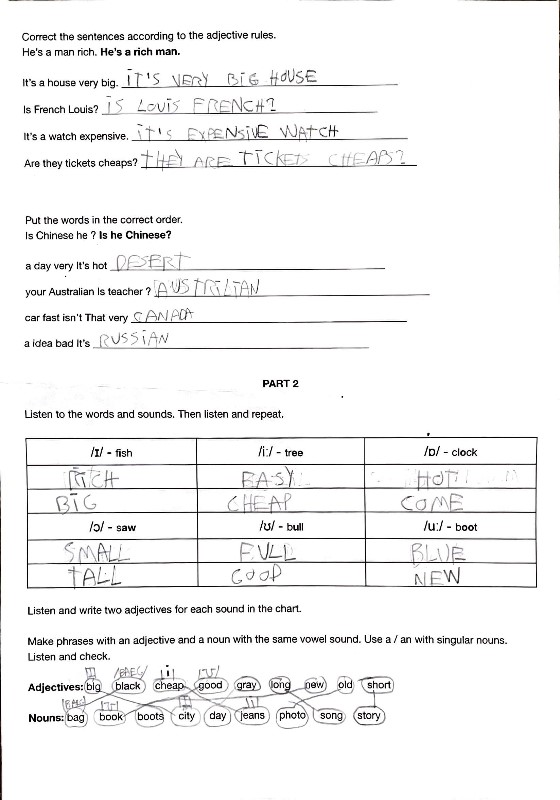 Correct the sentences according to the adjective rules.
He's a man rich. He's a rich man.
It's a house very big. IT'S VERY BIG HOUSE
Is French Louis? IS LOUIS FRENCH?
It's a watch expensive. IT'S EXPENSIVE WATCH
Are they tickets cheaps? THEY ARE TICKETS CHEAPS?
Put the words in the correct order.
Is Chinese he ? Is he Chinese?
a day very It's hot DESERT
your Australian Is teacher ? AUSTRILIAN
car fast isn't That very CANADA
a idea bad it's RUSSIAN
PART 2
Listen to the words and sounds. Then listen and repeat.
/ɪ/ - fish /i:/ - tree /ɒ/ - clock
RICH EASY HOT
BIG CHEAP COME
/ɔ/ - saw /ʊ/ - bull /u:/ - boot
SMALL FULL BLUE
TALL GOOD NEW
Listen and write two adjectives for each sound in the chart.
Make phrases with an adjective and a noun with the same vowel sound. Use a / an with singular nouns.
Listen and check.
Adjectives: big black cheap good gray long new old short
Nouns: bag book boots city day jeans photo song story